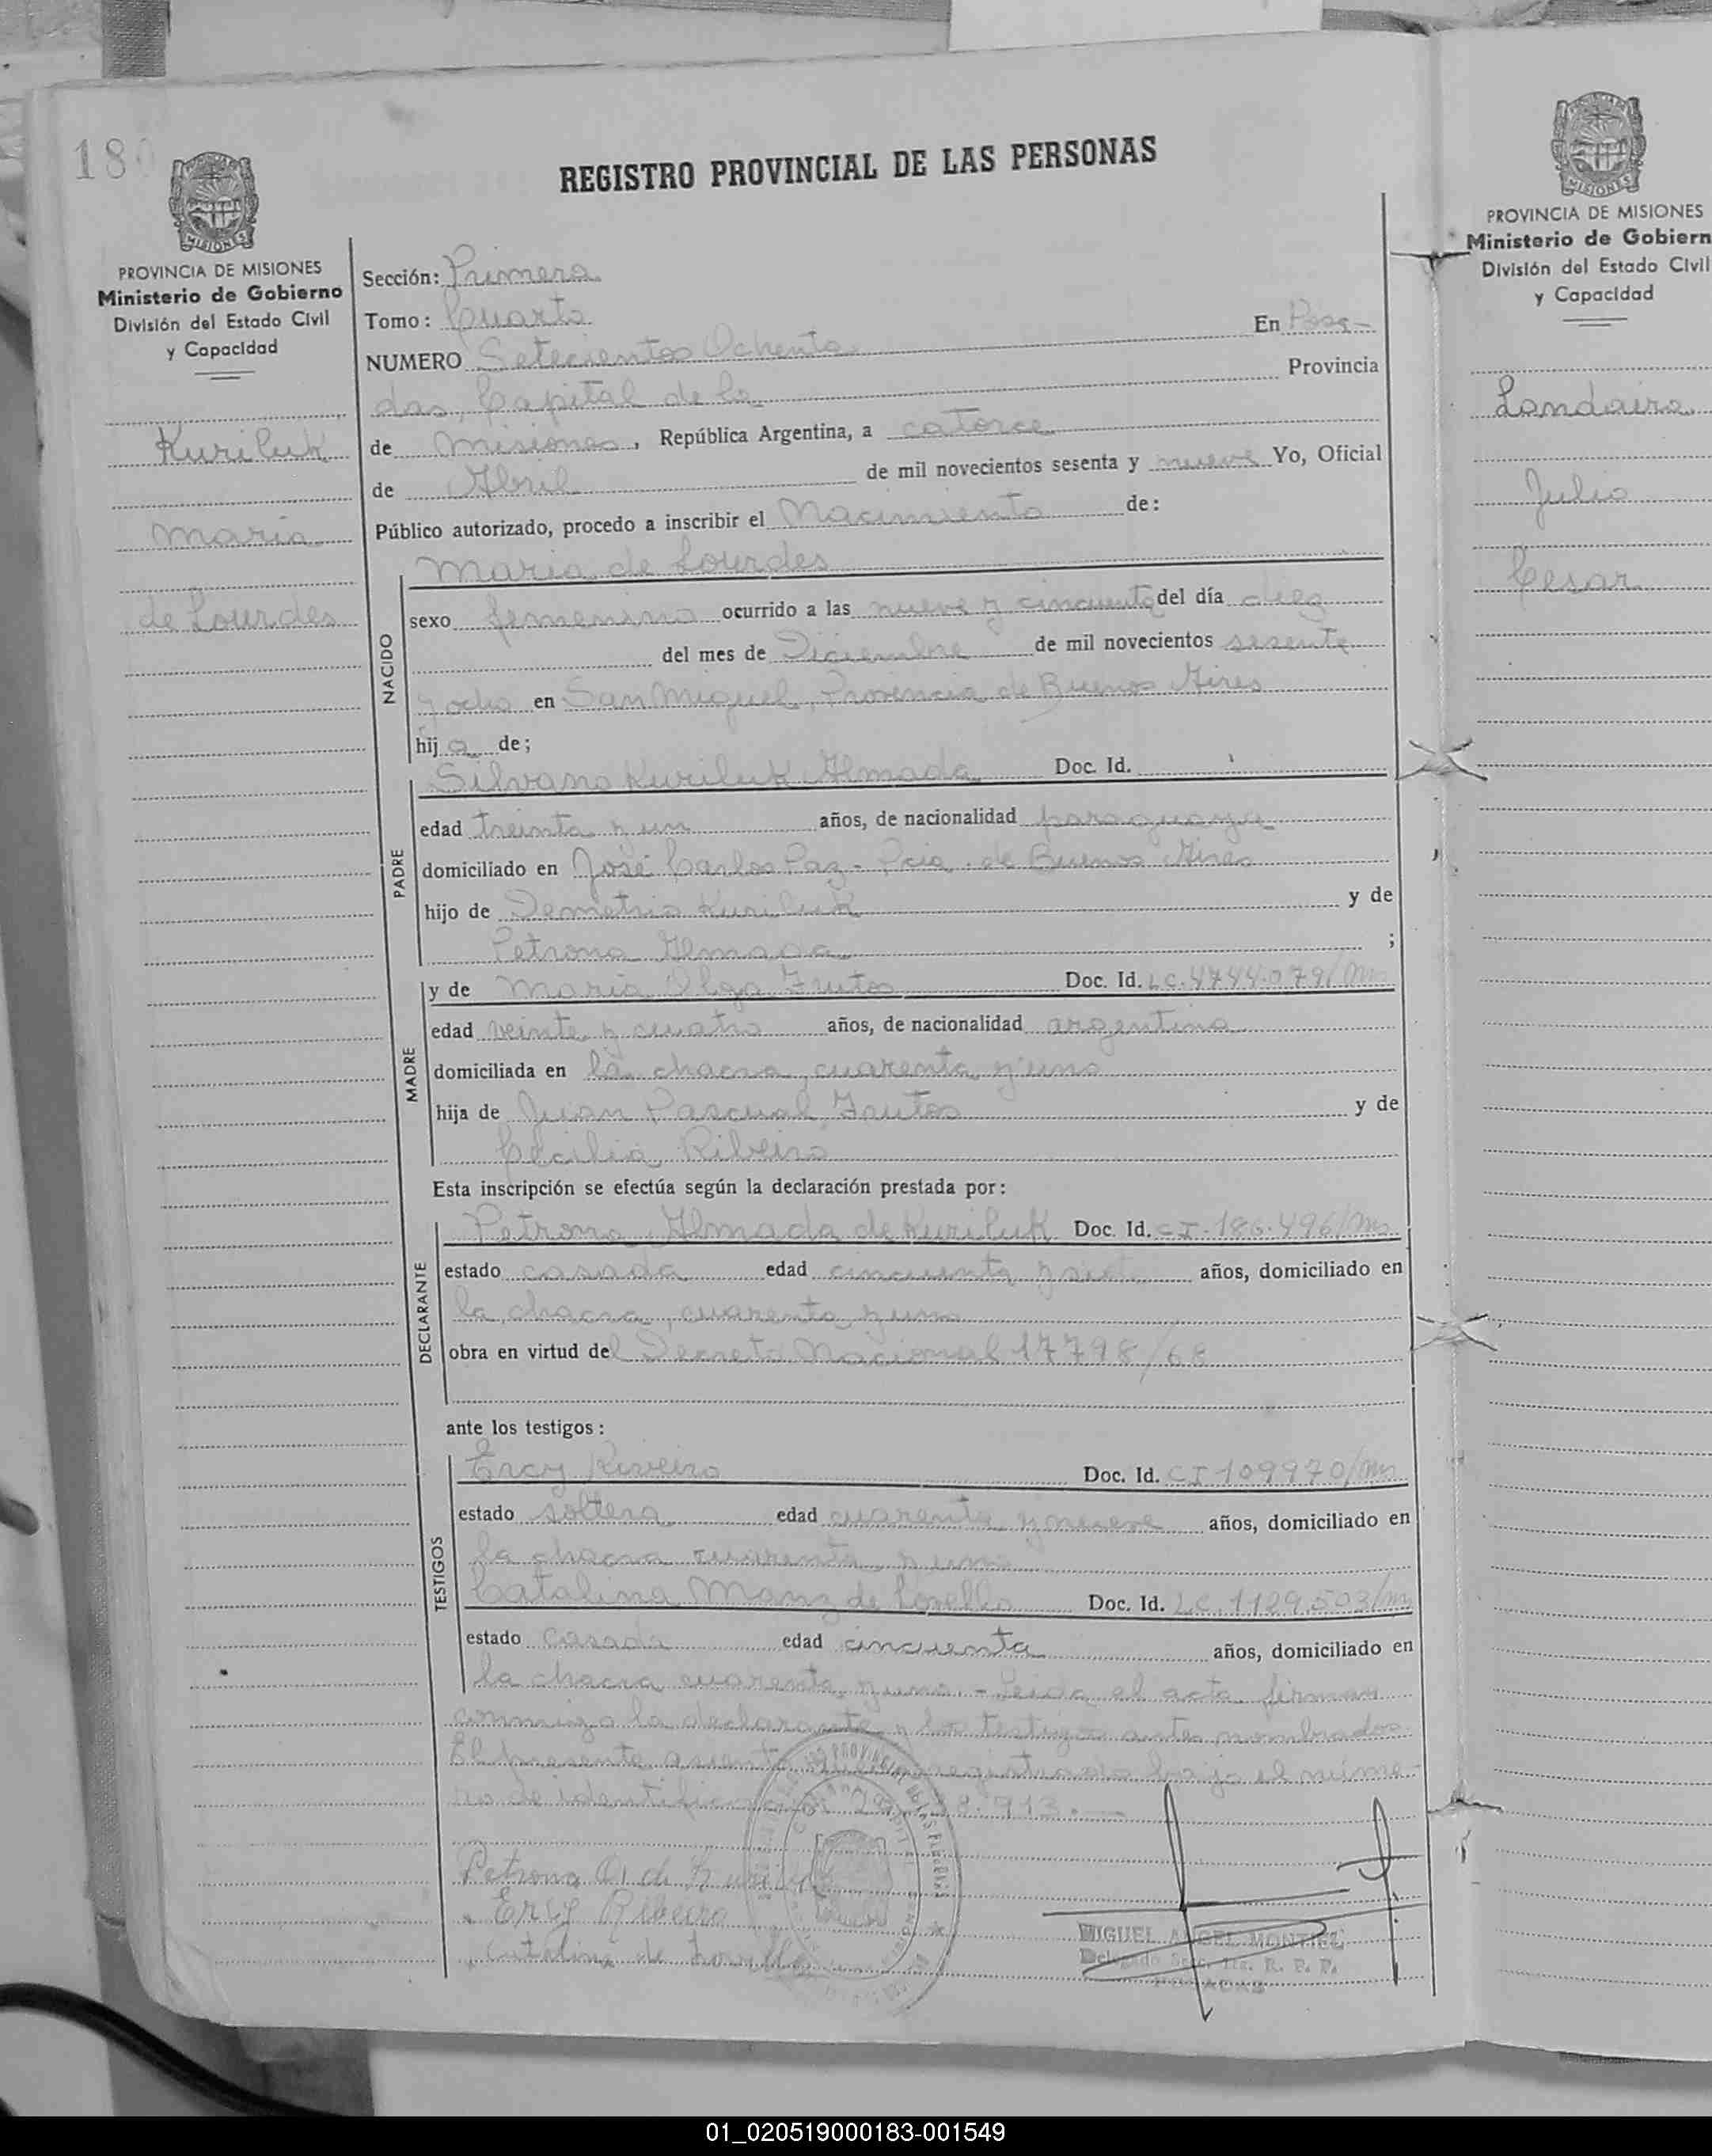 180
REGISTRO PROVINCIAL DE LAS PERSONAS
PROVINCIA DE MISIONES
Ministerio de Gobierno
División del Estado Civil
y Capacidad
Kuriluk
María
de Lourdes
Sección: Primera
Tomo: Cuarto
NUMERO Setecientos Ochenta En Posa-
das, Capital de la Provincia
de Misiones, República Argentina, a catorce
de Abril de mil novecientos sesenta y nueve Yo, Oficial
Público autorizado, procedo a inscribir el Nacimiento de:
María de Lourdes
NACIDO
sexo femenino ocurrido a las nueve y cincuenta del día diez
del mes de Diciembre de mil novecientos sesenta
y ocho en San Miguel, Provincia de Buenos Aires
hija de;
PADRE
Silvano Kuriluk Almada Doc. Id.
edad treinta y un años, de nacionalidad paraguaya
domiciliado en José Carlos Paz - Pcia. de Buenos Aires
hijo de Demetrio Kuriluk y de
Petrona Almada ;
MADRE
y de María Olga Frutos Doc. Id. LC. 4744.079/Ms
edad veinte y cuatro años, de nacionalidad argentina
domiciliada en la chacra, cuarenta y uno
hija de Juan Pascual Frutos y de
Cecilia Ribeiro
Esta inscripción se efectúa según la declaración prestada por:
DECLARANTE
Petrona Almada de Kuriluk Doc. Id. CI. 186.496/Ms.
estado casada edad cincuenta y siete años, domiciliado en
la chacra, cuarenta y uno
obra en virtud del Decreto Nacional 17798/68
ante los testigos:
TESTIGOS
Ercy Riveiro Doc. Id. CI 109970/Ms
estado soltera edad cuarenta y nueve años, domiciliado en
la chacra cuarenta y uno
Catalina Manz de Lovello Doc. Id. LC. 1129.503/Ms
estado casada edad cincuenta años, domiciliado en
la chacra cuarenta y uno. - Leída el acta firman
conmigo la declarante y los testigos antes nombrados.
El presente asiento registrado bajo el núme-
ro de identificación 913.-
Petrona A. de Kuriluk
Ercy Ribeiro
Catalina de Lovello
MIGUEL ANGEL MONTIEL
Delegado Secc. 1ra. R. P. P.
POSADAS
PROVINCIA DE MISIONES
Ministerio de Gobiern
División del Estado Civil
y Capacidad
Landaira
Julio
Cesar
01_020519000183-001549